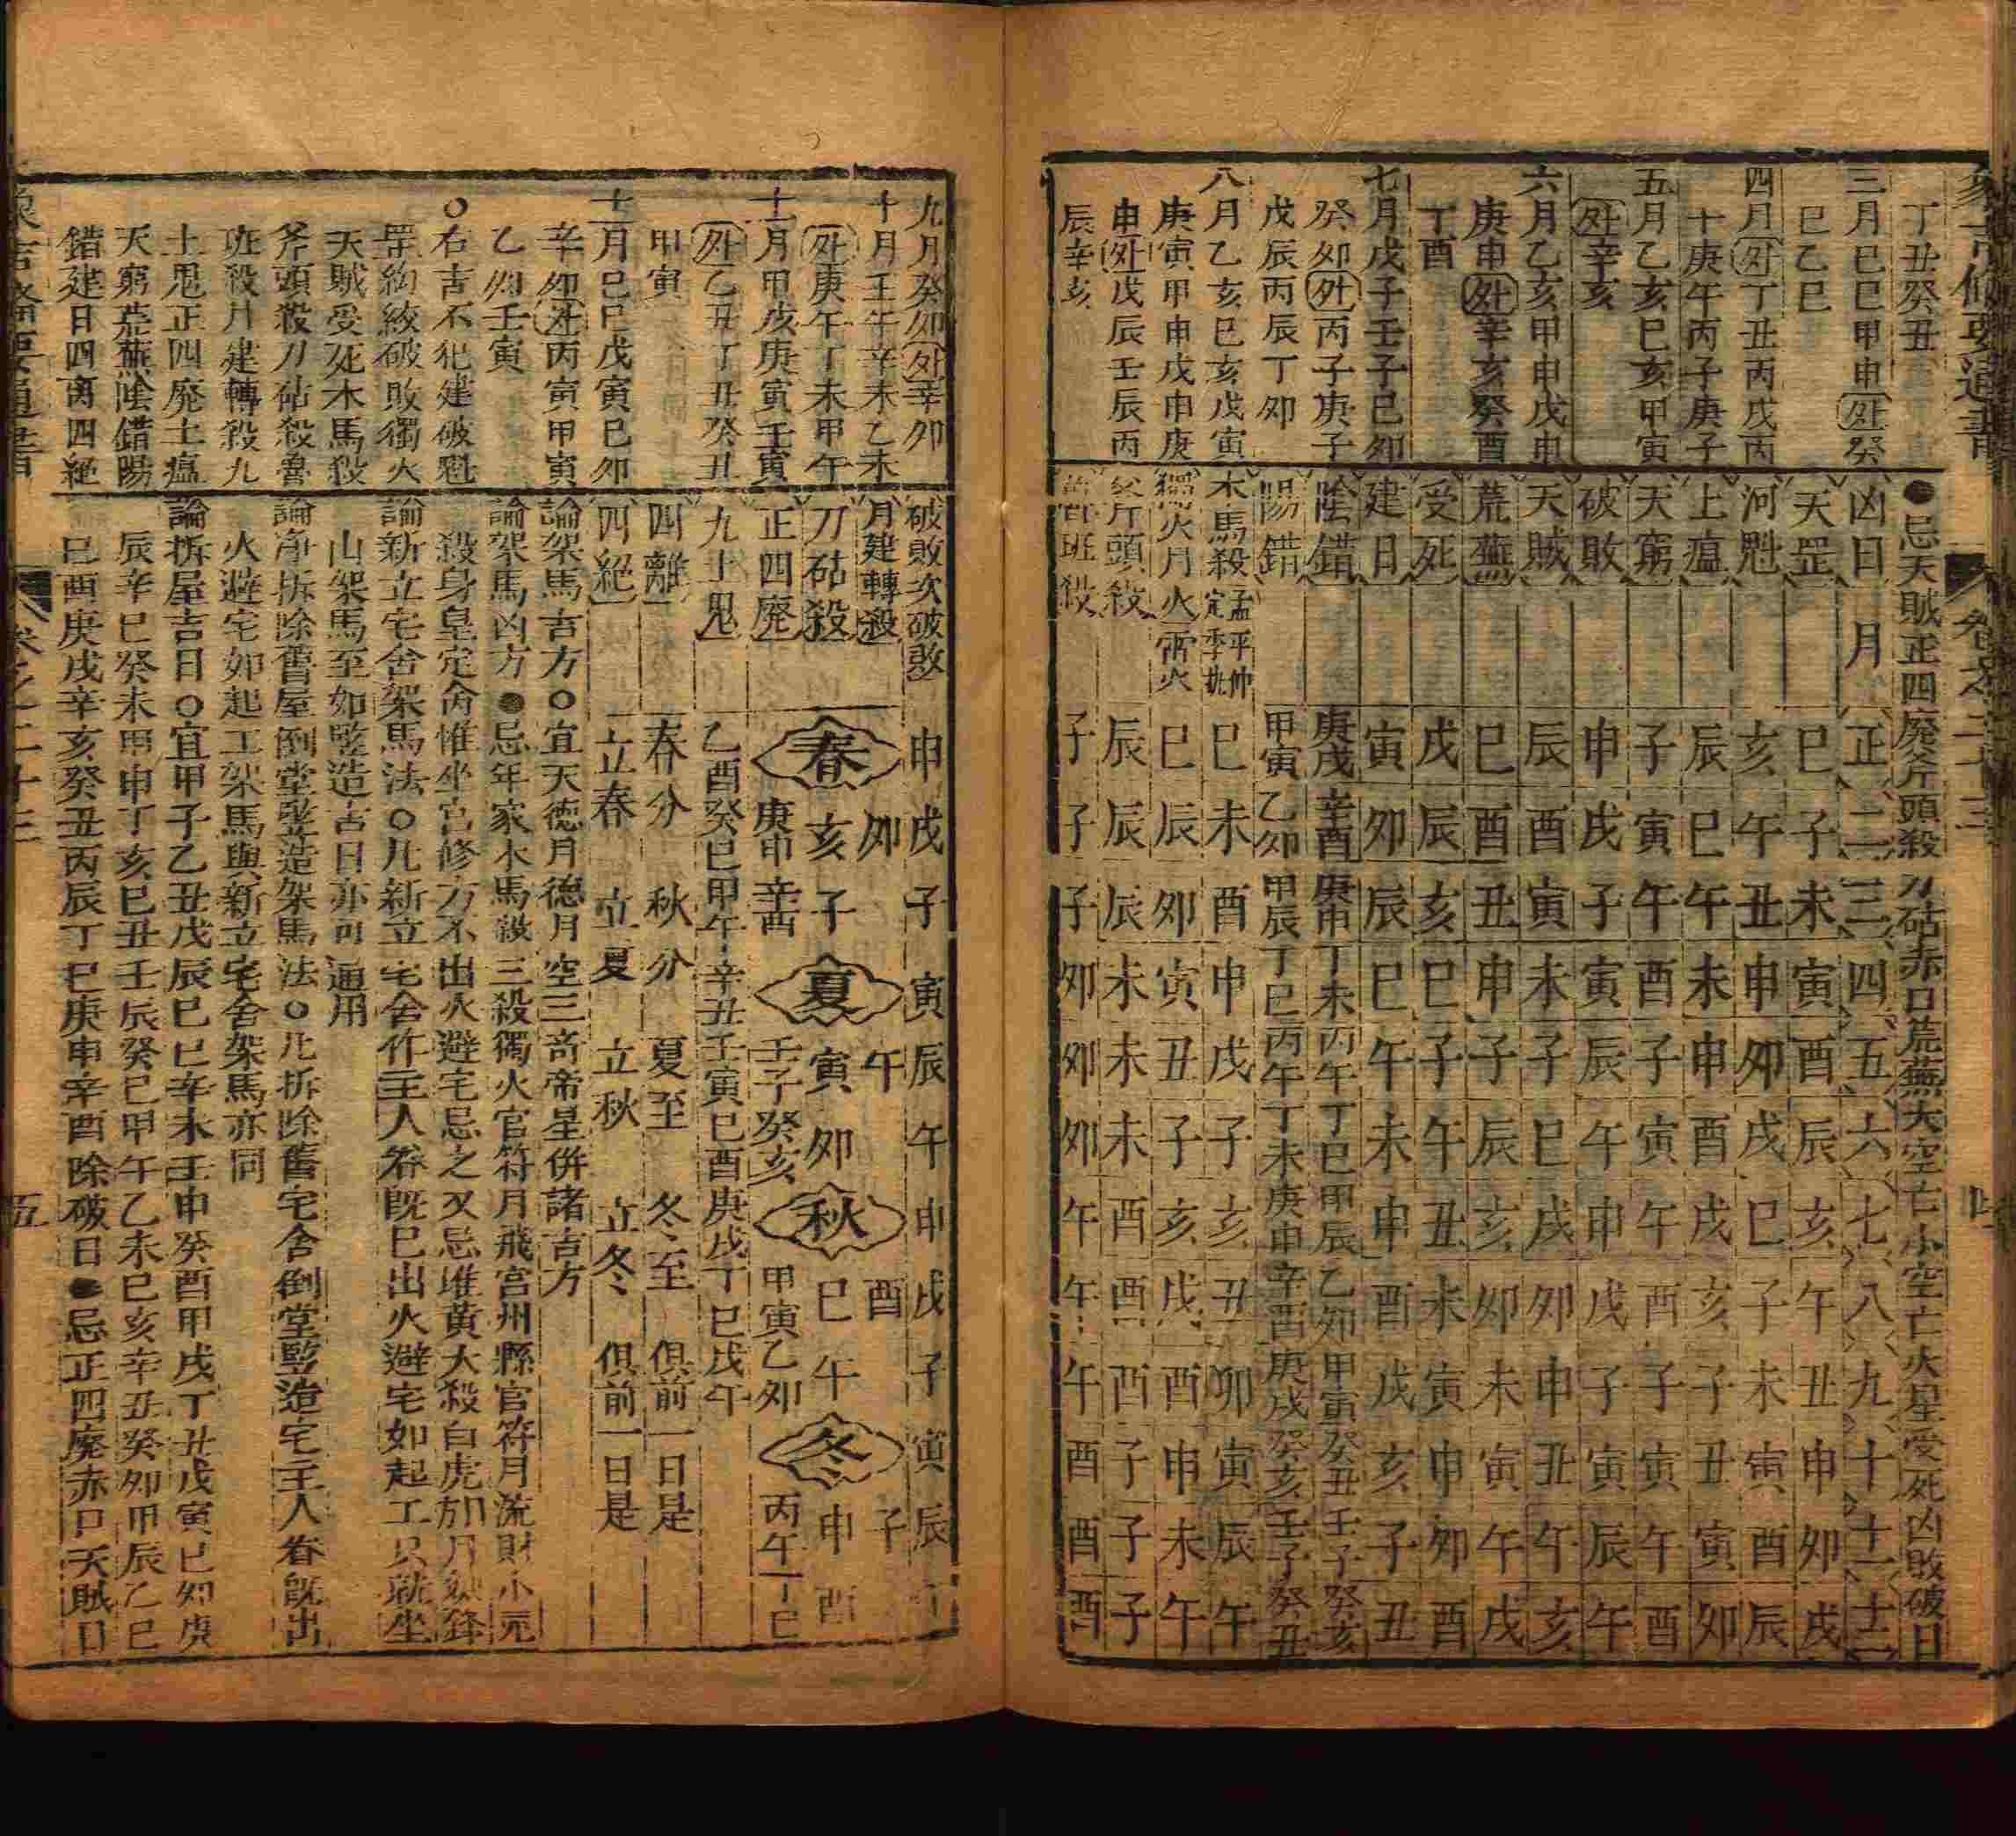 丁丑癸丑
三月己巳甲申外癸
巳乙巳
四月外丁丑丙戌丙
十庚午丙子庚子
五月乙亥巳亥甲寅
外辛亥
六月乙亥甲申戊申
庚申外辛亥癸酉
丁酉
七月戊子壬子己卯
癸卯外丙子庚子
戊辰丙辰丁卯
八月乙亥巳亥戊寅
庚寅甲申戊申庚
申外戊辰壬辰丙
辰辛亥
●忌天賊正四廢斧頭殺刀砧赤口荒蕪大空亡小空亡火星受死凶敗破日
凶日 月 正 二 三 四 五 六 七 八 九 十 十一 十二
天罡 巳 子 未 寅 酉 辰 亥 午 丑 申 卯 戌
河魁 亥 午 丑 申 卯 戌 巳 子 未 寅 酉 辰
土瘟 辰 巳 午 未 申 酉 戌 亥 子 丑 寅 卯
天窮 子 寅 午 酉 子 寅 午 酉 子 寅 午 酉
破敗 申 戌 子 寅 辰 午 申 戌 子 寅 辰 午
天賊 辰 酉 寅 未 子 巳 戌 卯 申 丑 午 亥
荒蕪 巳 酉 丑 申 子 辰 亥 卯 未 寅 午 戌
受死 戌 辰 亥 巳 子 午 丑 未 寅 申 卯 酉
建日 寅 卯 辰 巳 午 未 申 酉 戌 亥 子 丑
陰錯 庚戌 辛酉 庚申 丁未 丙午 丁巳 甲辰 乙卯 甲寅 癸丑 壬子 癸亥
陽錯 甲寅 乙卯 甲辰 丁巳 丙午 丁未 庚申 辛酉 庚戌 癸亥 壬子 癸丑
木馬殺 巳 未 酉 申 戌 子 亥 丑 卯 寅 辰 午
獨火月火 雷火 巳 辰 卯 寅 丑 子 亥 戌 酉 申 未 午
斧頭殺 辰 辰 辰 未 未 未 酉 酉 酉 子 子 子
魯班殺 子 子 子 卯 卯 卯 午 午 午 酉 酉 酉
九月癸卯外辛卯
十月壬午辛未乙未
外庚午丁未甲午
十一月甲戌庚寅壬寅
外乙丑丁丑癸丑
甲寅
十二月己巳戊寅巳卯
辛卯外丙寅甲寅
乙卯壬寅
○右吉不犯建破魁
罡絇絞破敗獨火
天賊受死木馬殺
斧頭殺刀砧殺魯
班殺月建轉殺九
土鬼正四廢土瘟
天窮荒蕪陰錯陽
錯建日四离四絕
破敗次破敗 申 戌 子 寅 辰 午 申 戌 子 寅 辰
月建轉殺 卯 午 酉 子
刀砧殺 春 亥 子 夏 寅 卯 秋 巳 午 冬 申 酉
正四廢 庚申 辛酉 壬子 癸亥 甲寅 乙卯 丙午 丁巳
九土鬼 乙酉癸巳甲午辛丑壬寅巳酉庚戌丁巳戊午
四離 春分 秋分 夏至 冬至 俱前一日是
四絕 立春 立夏 立秋 立冬 俱前一日是
論架馬吉方○宜天德月德月空三奇帝星併諸吉方
論架馬凶方●忌年家木馬殺三殺獨火官符月飛宫州縣官符月流財小兒
殺身皇定命惟坐宮修方不出火避宅忌之又忌堆黃大殺白虎
論新立宅舍架馬法○凡新立宅舍作主人眷既已出火避宅如起工只就坐
山架馬至如竪造吉日亦可通用
論淨拆除舊屋倒堂竪造架馬法○凡拆除舊宅舍倒堂竪造宅主人眷既出
火避宅如起工架馬與新立宅舍架馬亦同
論拆屋吉日○宜甲子乙丑戊辰巳巳辛未壬申癸酉甲戌丁丑戊寅巳卯庚
辰辛巳癸未甲申丁亥巳丑壬辰癸巳甲午乙未巳亥辛丑癸卯甲辰乙巳
巳酉庚戌辛亥癸丑丙辰丁巳庚申辛酉除破日●忌正四廢赤口天賊日